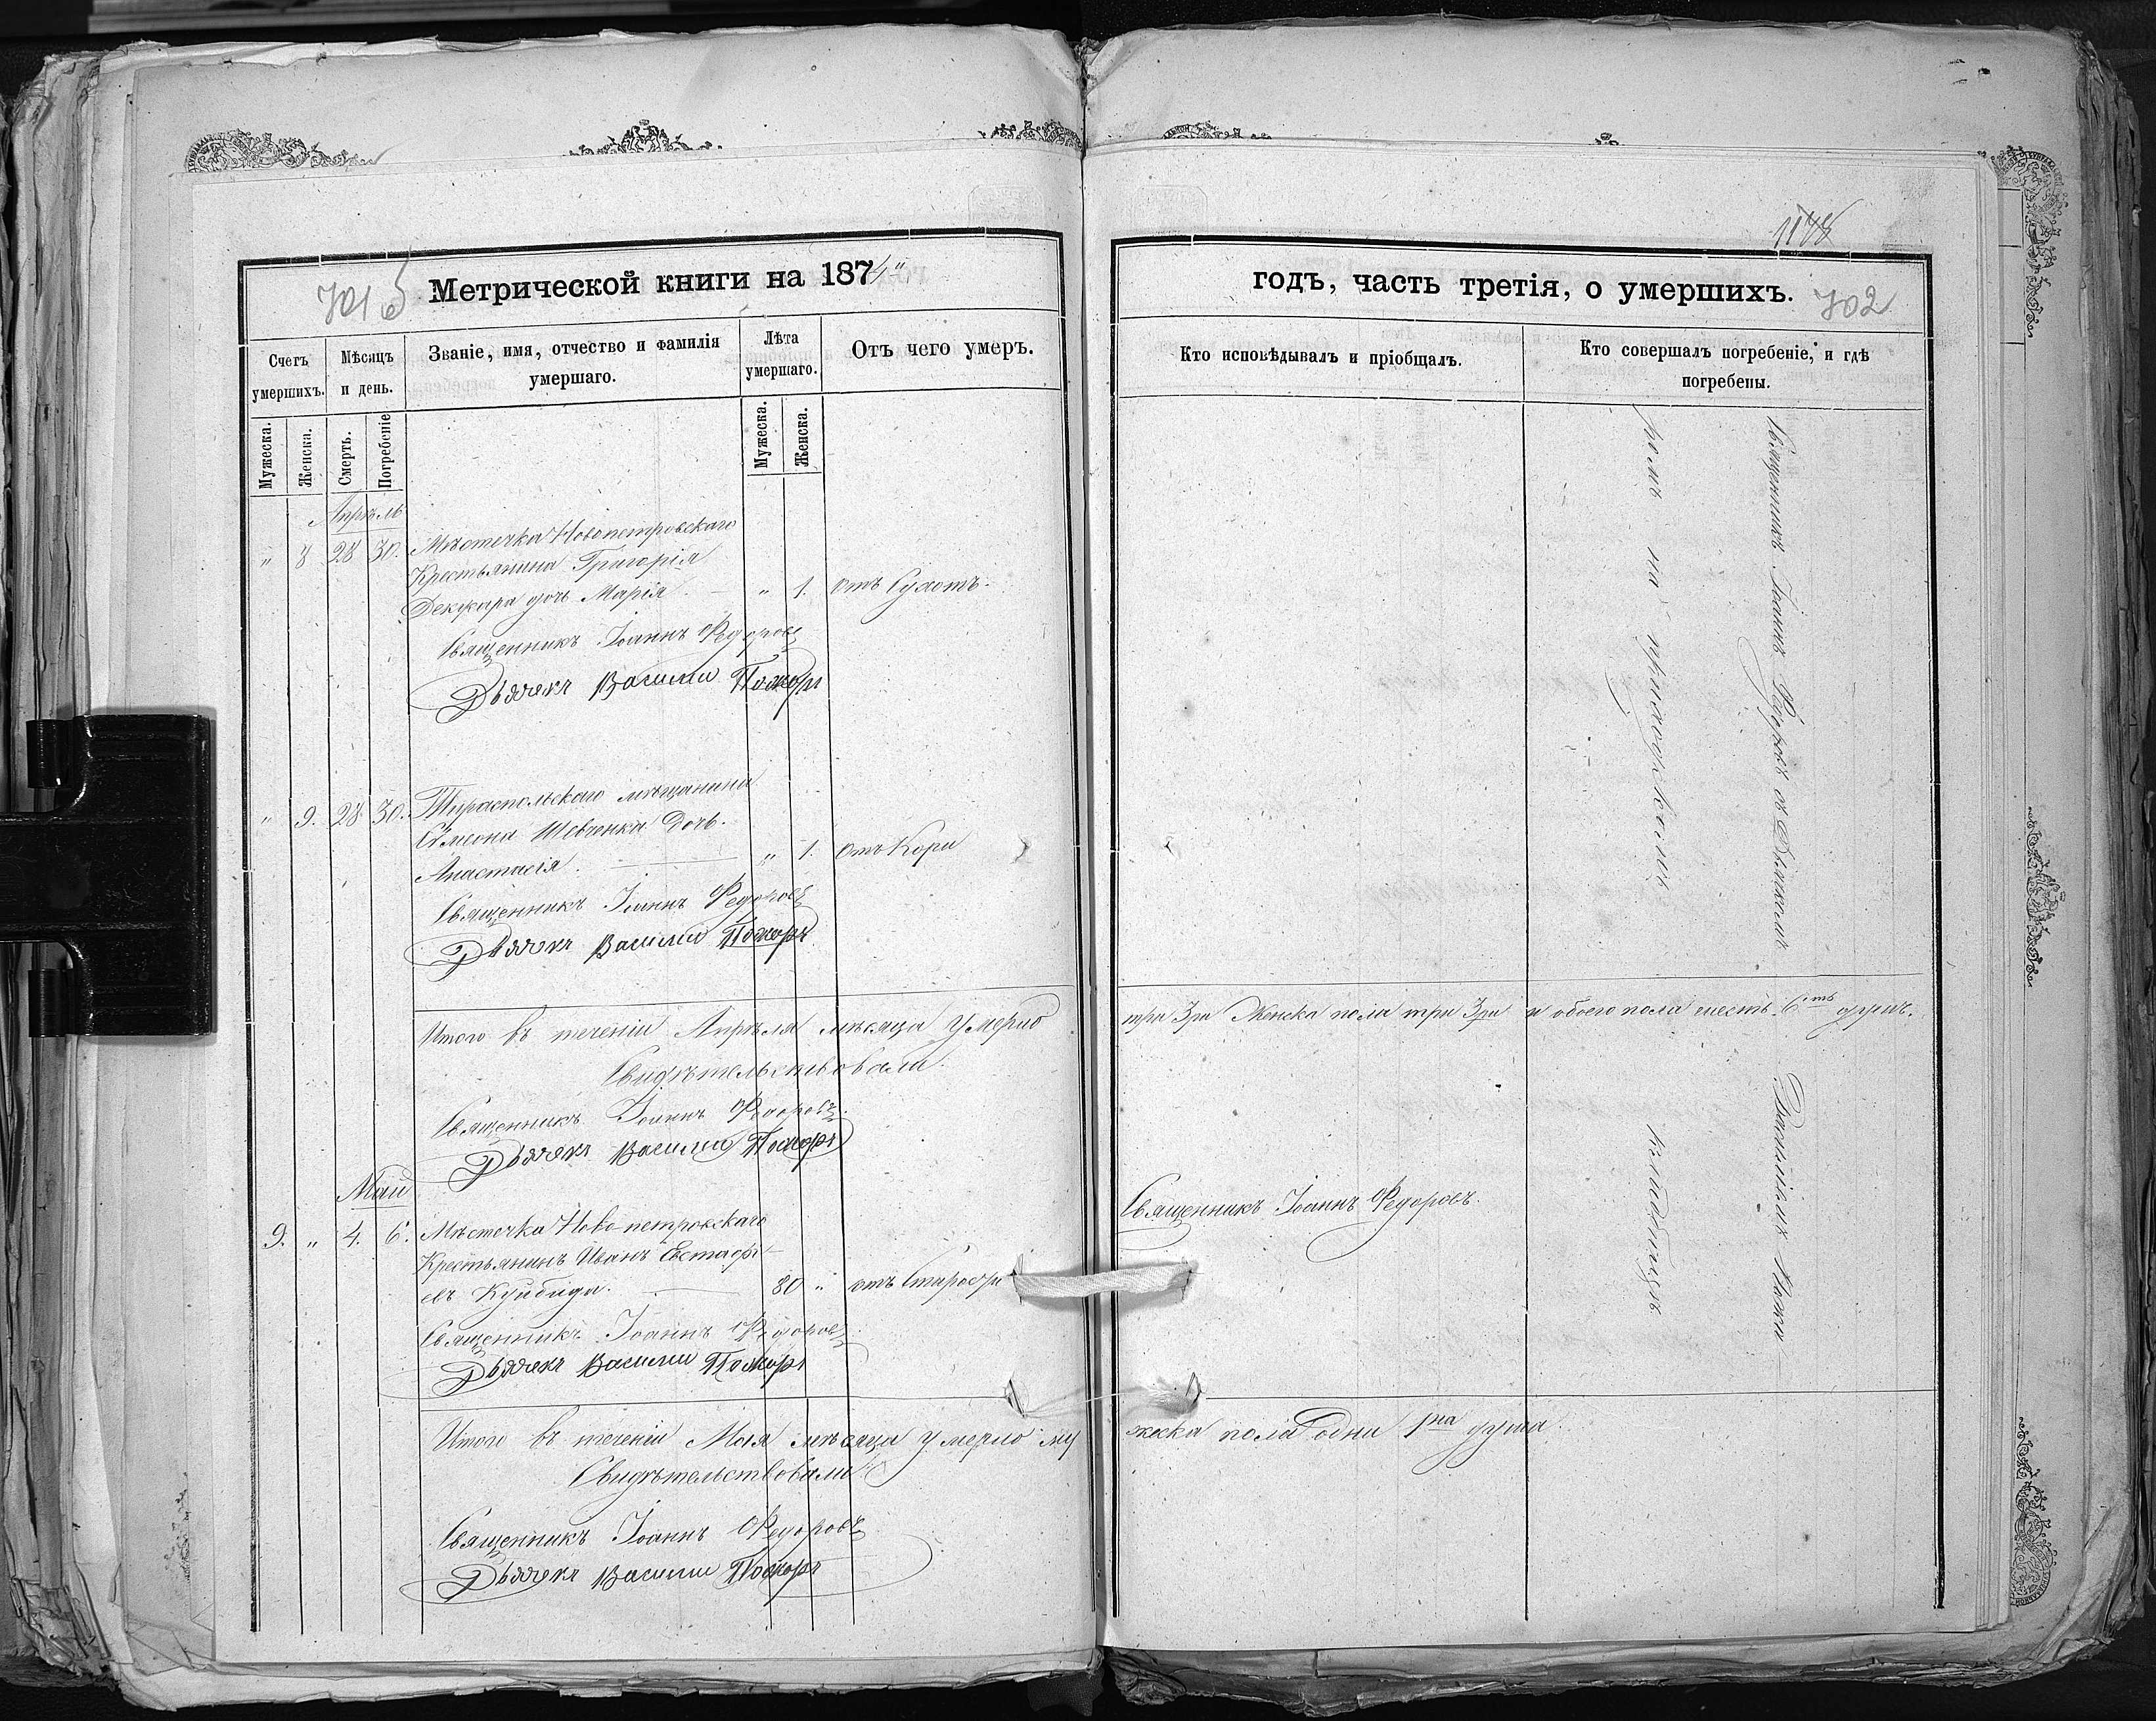 701
Метрической книги на 1874
Счетъ умершихъ.
Мѣсяцъ и день.
Званіе, имя, отчество и фамилія умершаго.
Лѣта умершаго.
Отъ чего умеръ.
Мужеска.
Женска.
Смерть.
Погребеніе
Мужеска.
Женска.
Апрѣль
„ 8 28 30. Мѣстечка Новопетровскаго
Крестьянина Григорія
дочь Марія. — „ 1. отъ Сухотъ.
Священникъ Іоаннъ Федоровъ
Дьячекъ Василий
„ 9. 28 30. Тираспольскаго мѣщанина
Сѵмеона Шевченка дочь.
Анастасія. — „ 1. отъ Кори
Священникъ Іоаннъ Федоровъ
Дьячекъ Василий
Итого въ теченіи Апрѣля мѣсяца умерло
Свидѣтельствовали.
Священникъ Іоаннъ Федоровъ.
Дьячекъ Василий
Май
9. „ 4. 6. Мѣстечка Ново-петровскаго
Крестьянинъ Иванъ Евстафі-
евъ Куйбида. — 80 „ отъ Старости
Священникъ Іоаннъ Федоровъ
Дьячекъ Василий
Итого въ теченіи Мая мѣсяца умерло му
Свидѣтельствовали
Священникъ Іоаннъ Федоровъ
Дьячекъ Василий
1178
годъ, часть третія, о умершихъ.
702
Кто исповѣдывалъ и пріобщалъ.
Кто совершалъ погребеніе, и гдѣ погребены.
Священникъ Іоаннъ Федоровъ съ Дьячкомъ
ромъ на приходскомъ
три 3ри Женска пола три 3ри и обоего пола шесть 6ть душъ.
Василіемъ
кладбищѣ
Священникъ Іоаннъ Федоровъ.
жеска пола одна 1на душа.